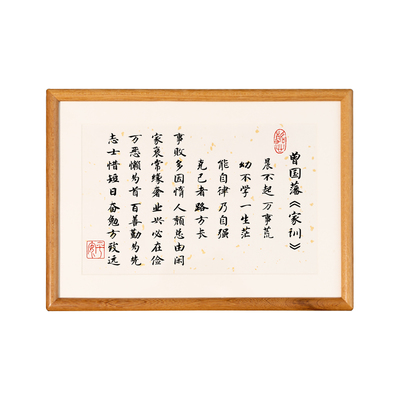 曾国藩《家训》
晨不起 万事荒
幼不学 一生茫
能自律 乃自强
克己者 路方长
事败多因情 人颓总由闲
家衰常缘奢 业兴必在俭
万恶懒为首 百善勤为先
志士惜短日 奋勉方致远